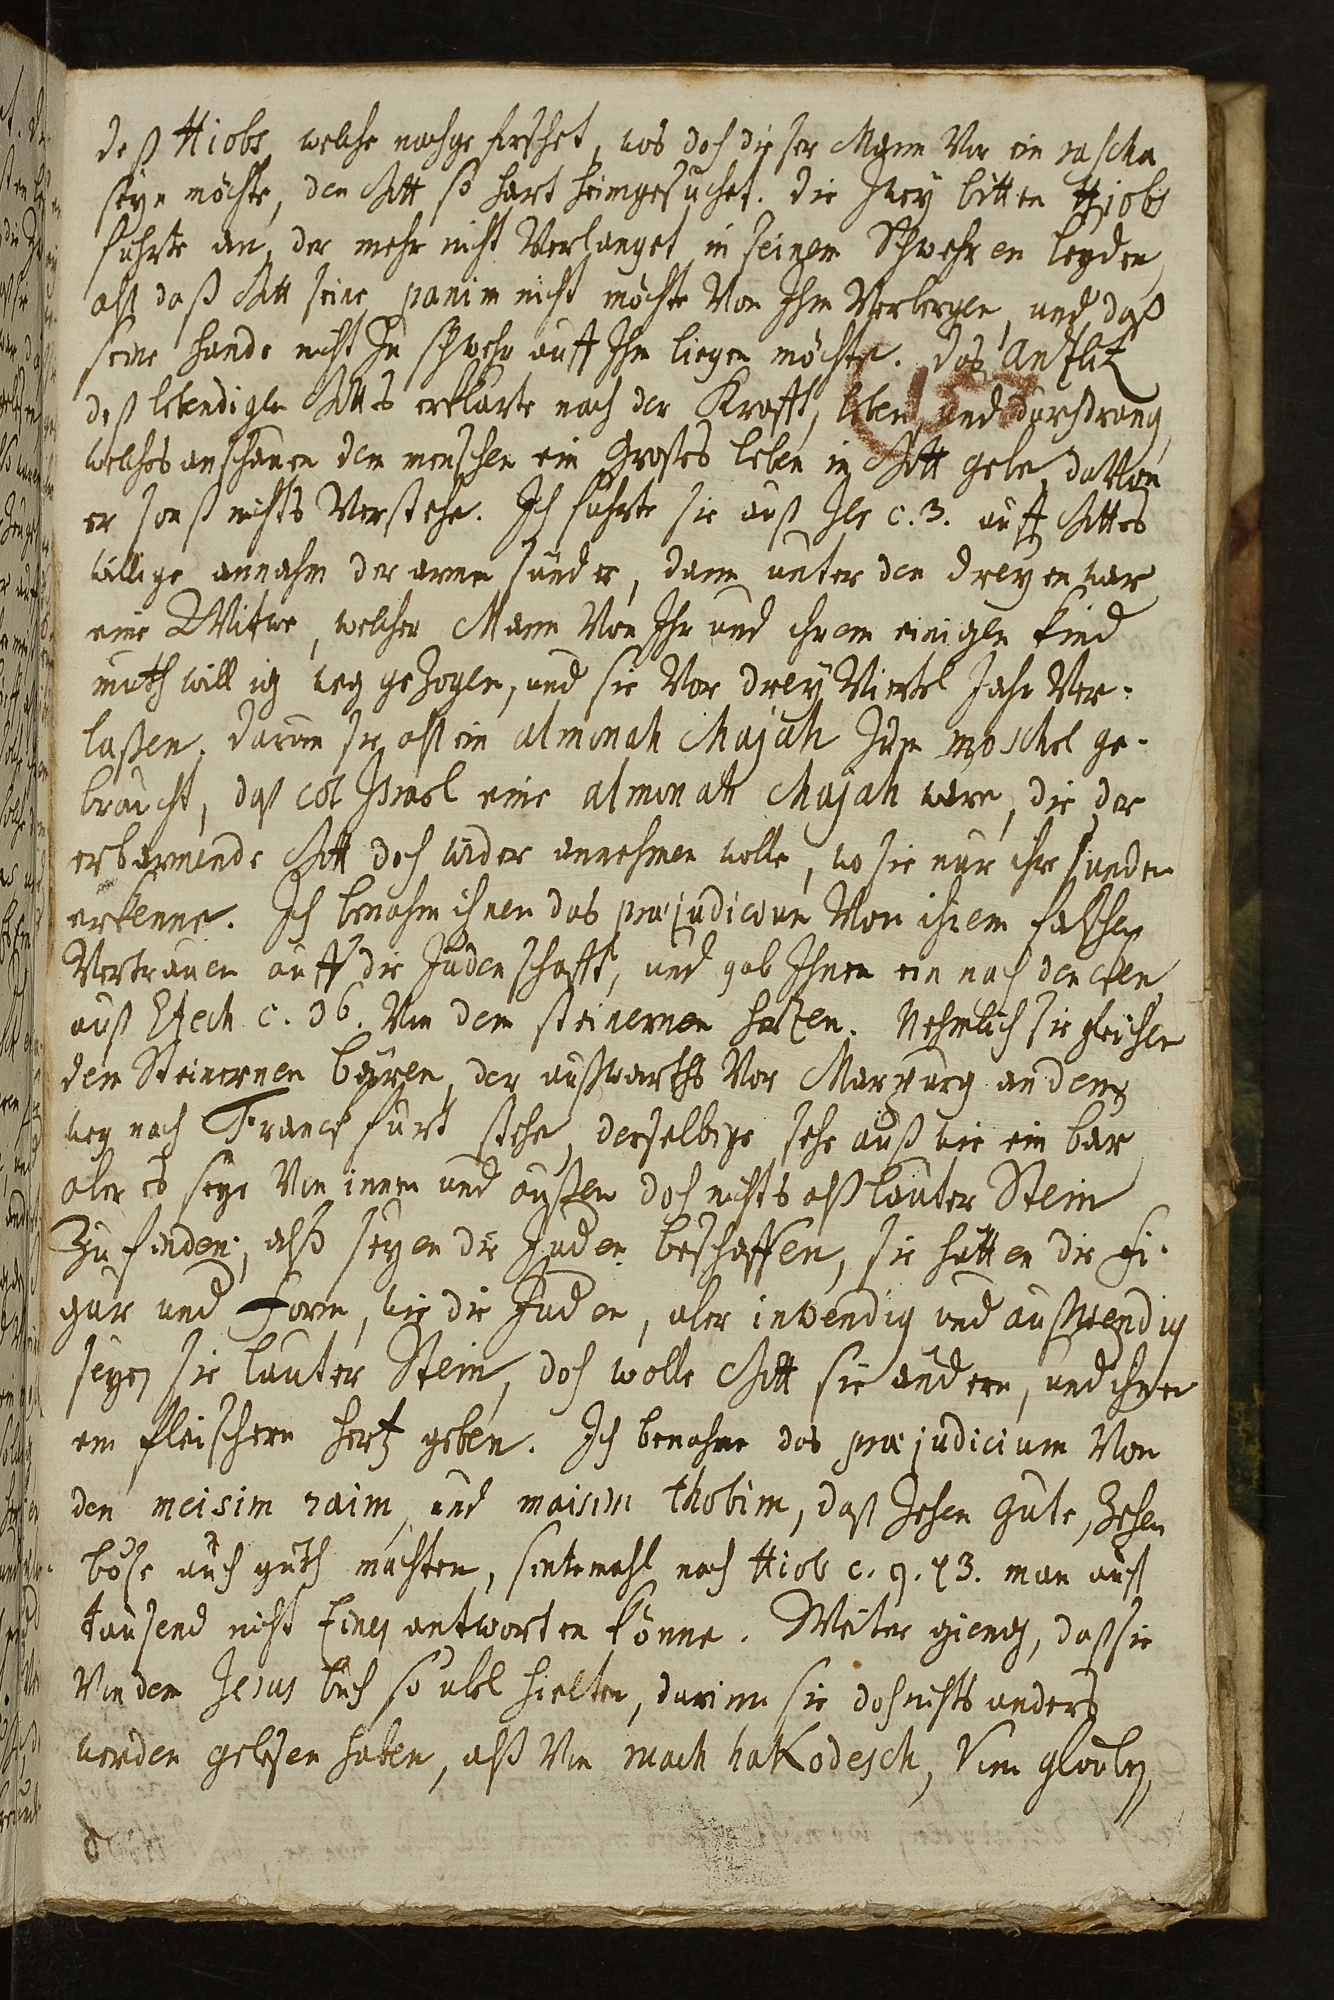 deß Hiobs, welche nachgeforschet, was doch dieser Mann Vor ein rascha
seyn möchte, den Gott so hart heimgesuchet. die Zwey bitten Hiobs
führte an, der mehr nicht Verlanget in seinem Schwehren leyden,
alß daß Gott seine panim nicht möchte Von Ihm Verbergen, und daß
seine hande nicht Zu schwehr auff Ihm liegen möchte. das Antlitz
(157
deß lebendigen Gottes erklarte nach der Krafft, leben und durchdrang,
welches anschauen dem menschen ein Großes leben in Gott gebe, davon
er sonst nichts Verstehe. Ich führte sie auß Jer c. 3. auff Gottes
willige annahm der armen sünder, dann unter den dreyen war
eine Witwe, welcher Mann Von Ihr und ihrem einigen kind
muthwillig weg gezogen, und sie Vor drey Viertel Jahr Ver-
laßen. darum sie alß ein almonah chajah Zum moschel ge-
braucht, daß col Israel eine almonah chajah ware, die der
erbarmende Gott doch wider annehmen wolle, wo sie nur ihre sünden
erkenne. Ich benahm ihnen das præjudicium Von ihrem falschen
Vertrauen auff die Judenschafft, und gab Ihnen ein nachdencken
auß Ezech c. 36. Von dem steinernen hertzen. Nehmlich sie gleichen
dem Steinernen bären, der außwarths Vor Marpurg an dem
weg nach Franckfurt stehe, derselbige sehe auß wie ein bar
aber es seye Von innen und außen doch nichts alß lauter Stein
Zu finden; alß seyen die Juden beschaffen, sie hätten die Fi-
gur und Form, wie die Juden, aber inwendig und außwendig
seyen sie lauter Stein, doch wolle Gott sie ändern, und ihnen
ein fleischern hertz geben. Ich benahme das præjudicium Von
den meisim raim, und maisim thobim, daß Zehen Gute, Zehen
böse auch guth machten, sintemahl nach Hiob c. 9. v3. man auf
tausend nicht Eines antworten könne. Weiter gieng, daß sie
Von dem Jesus buch so übel hielten, darinn sie doch nichts anders
werden gelesen haben, alß Von ruach haKodesch, Vom glauben,